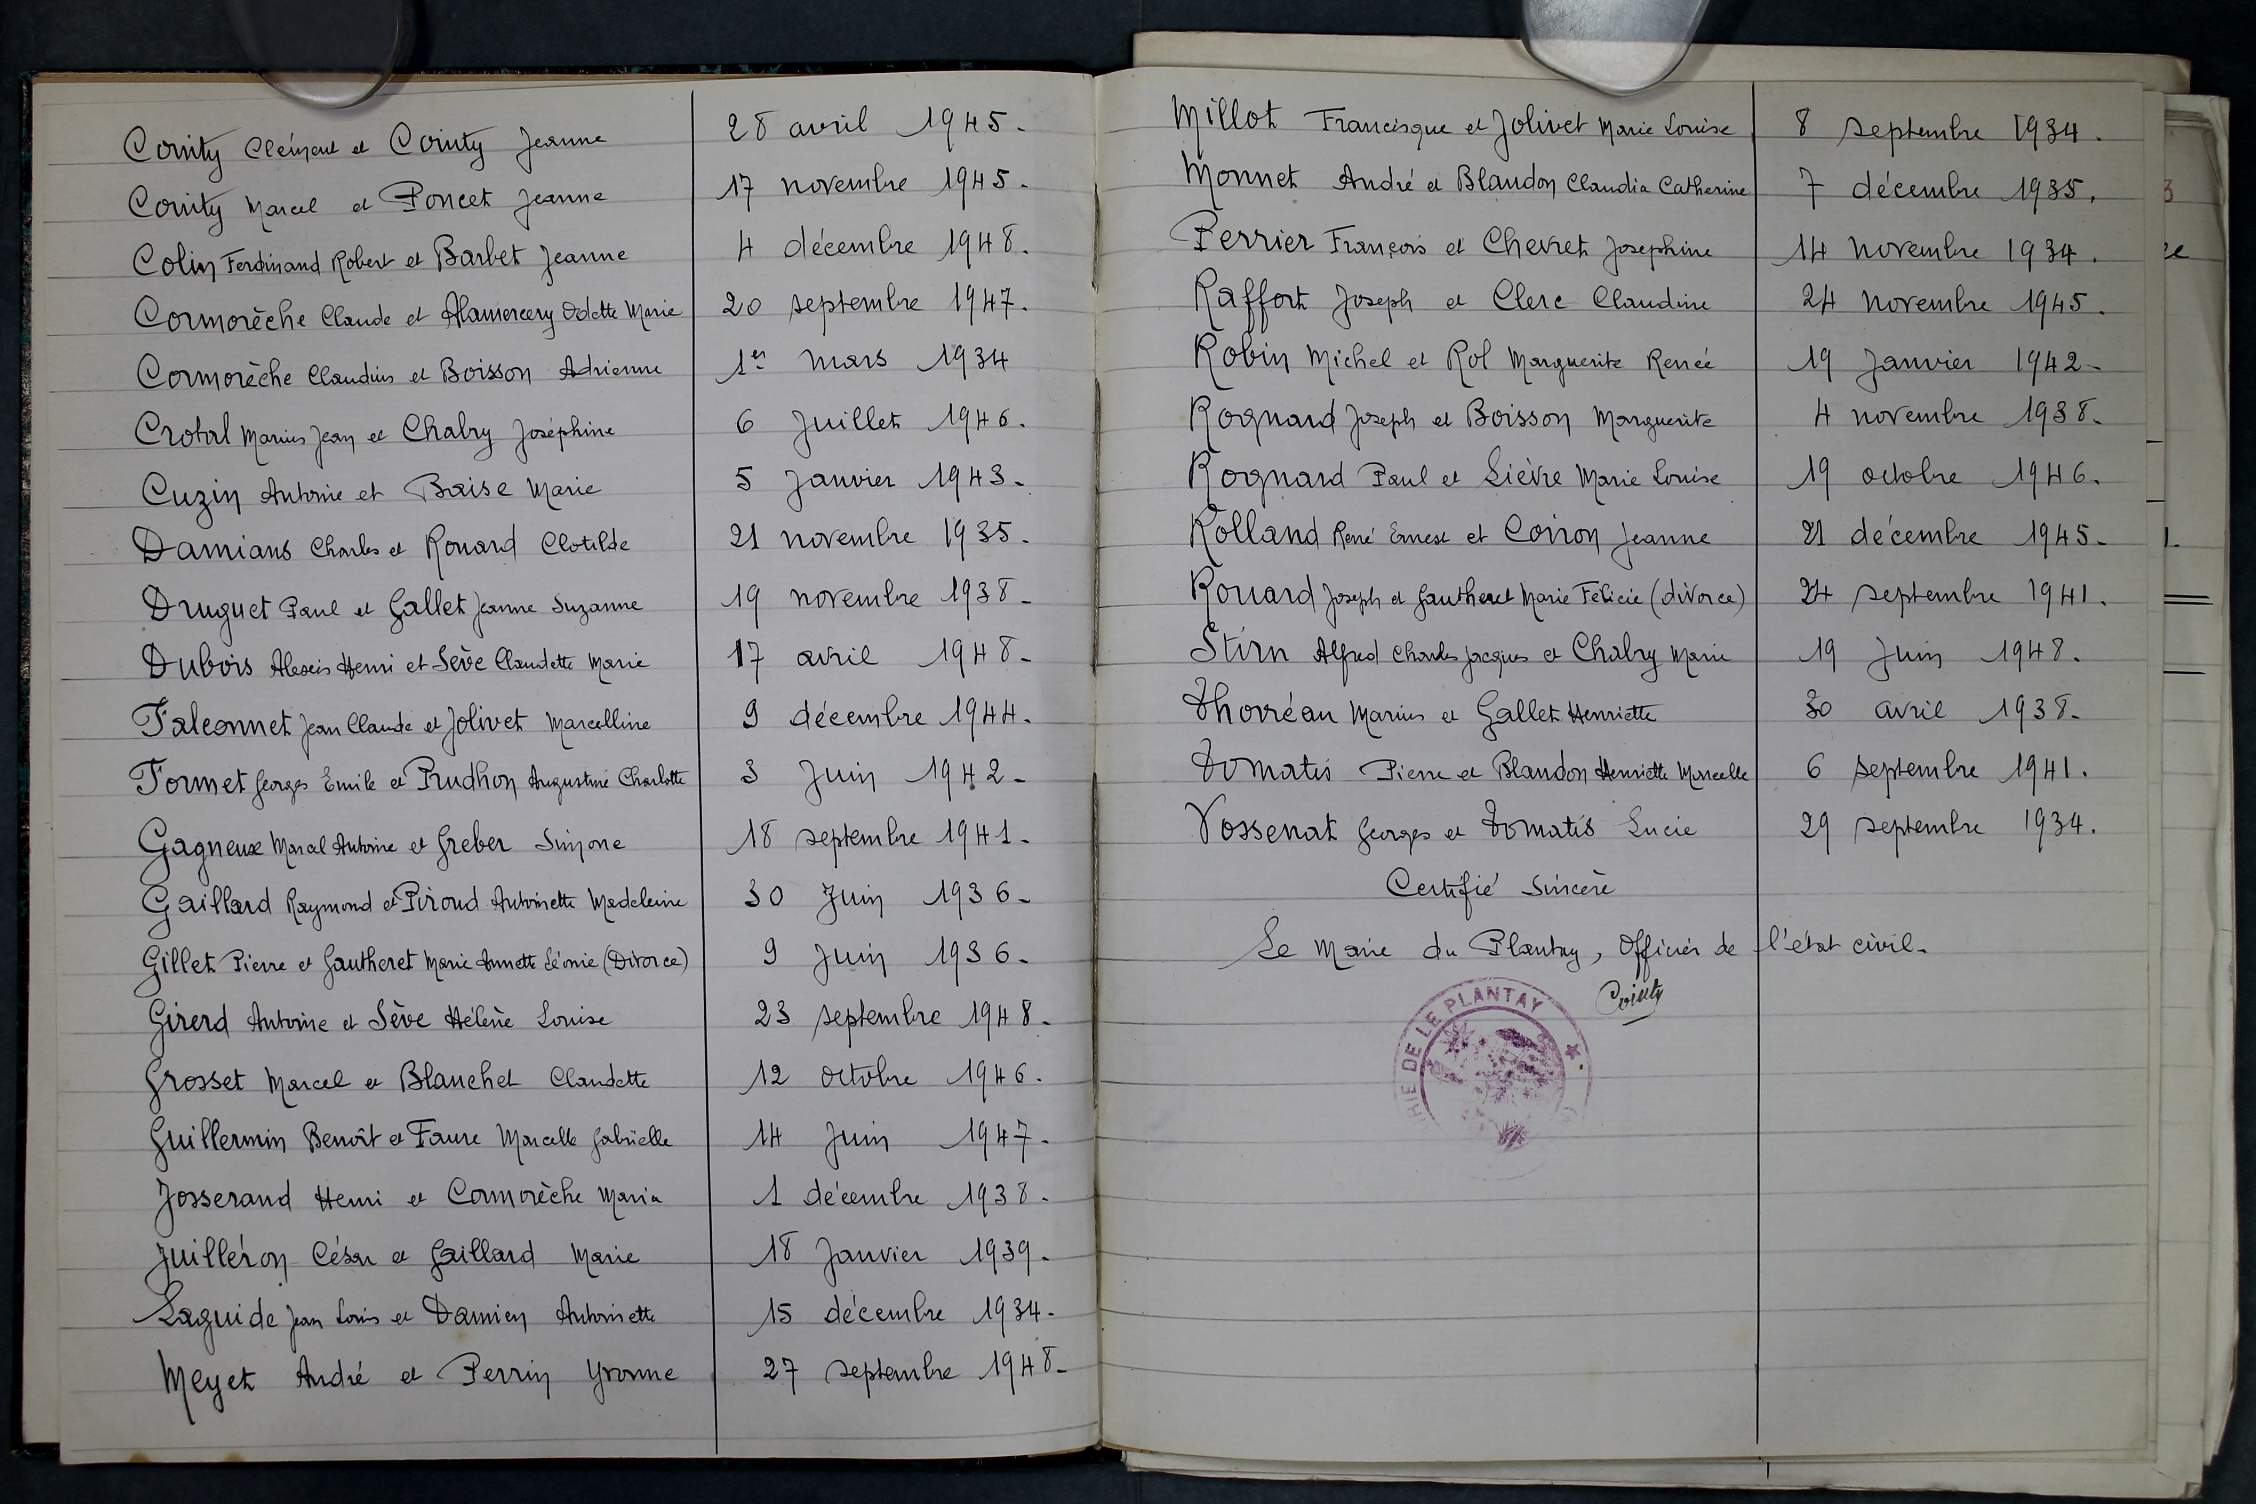 Cointy Clément et Cointy Jeanne 28 avril 1945.
Cointy Marcel et Poncet Jeanne 17 novembre 1945.
Colin Ferdinand Robert et Barbet Jeanne 4 décembre 1948.
Cormorèche Claude et Alamercery Odette Marie 20 septembre 1947.
Cormorèche Claudius et Boisson Adrienne 1er mars 1934
Crotal Marius Jean et Chabry Joséphine 6 Juillet 1946.
Cuzin Antoine et Baise Marie 5 Janvier 1943.
Damians Charles et Rouard Clotilde 21 novembre 1935.
Druguet Paul et Gallet Jeanne Suzanne 19 novembre 1938.
Dubois Alexis Henri et Sève Claudette Marie 17 avril 1948.
Falconnet Jean Claude et Jolivet Marcelline 9 décembre 1944.
Formet Georges Emile et Prudhon Augustine Charlotte 3 Juin 1942.
Gagneux Marcel Antoine et Greber Simone 18 septembre 1941.
Gaillard Raymond et Piroud Antoinette Madeleine 30 Juin 1936.
Gillet Pierre et Gautheret Marie Annette Léonie (Divorce) 9 Juin 1936.
Girerd Antoine et Sève Hélène Louise 23 septembre 1948.
Grosset Marcel et Blanchet Claudette 12 octobre 1946.
Guillermin Benoît et Faure Marcelle Gabrielle 14 Juin 1947.
Josserand Henri et Cormorèche Maria 1 décembre 1938.
Juilléron César et Gaillard Marie 18 Janvier 1939.
Laguide Jean Louis et Damien Antoinette 15 décembre 1934.
Meyet André et Perrin Yvonne 27 septembre 1948.
Millot Francisque et Jolivet Marie Louise 8 septembre 1934.
Monnet André et Blandon Claudia Catherine 7 décembre 1935.
Perrier François et Chevret Josephine 14 novembre 1934.
Raffort Joseph et Clerc Claudine 24 novembre 1945.
Robin Michel et Rol Marguerite Renée 19 Janvier 1942.
Rognard Joseph et Boisson Marguerite 4 novembre 1938.
Rognard Paul et Lièvre Marie Louise 19 octobre 1946.
Rolland René Ernest et Coiron Jeanne 21 décembre 1945.
Rouard Joseph et Gautheret Marie Félicie (divorce) 24 septembre 1941.
Stirn Alfred Charles Jacques et Chabry Marie 19 Juin 1948.
Thovréau Marius et Gallet Henriette 30 avril 1938.
Tomatis Pierre et Blandon Henriette Marcelle 6 septembre 1941.
Vossenat Georges et Tomatis Lucie 29 septembre 1934.
Certifié Sincère
Le Maire du Plantay, Officier de l'état civil.
Cointy
RIE DE LE PLANTAY